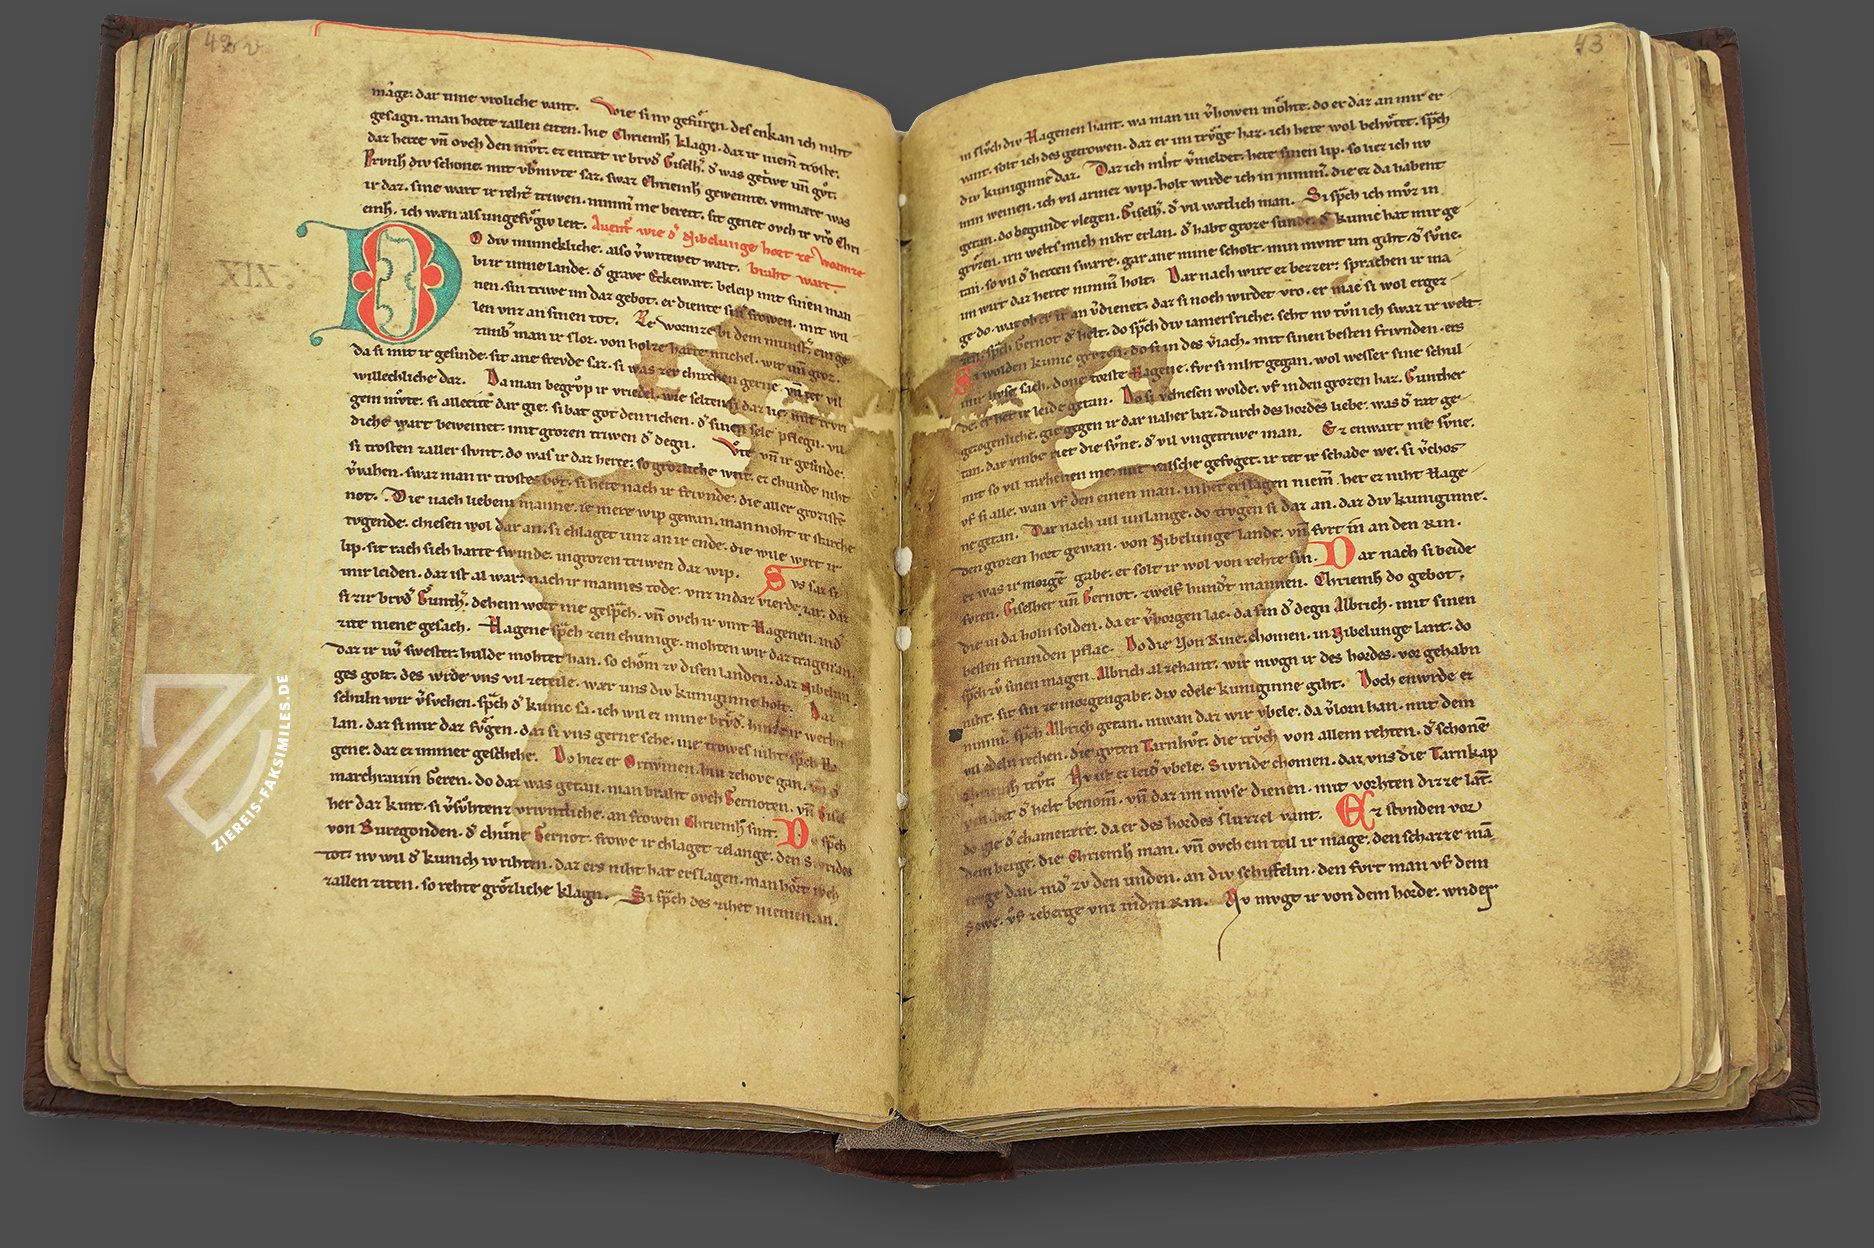 42v
mage. daz ime vroliche vant. Wie si nv gefůren. des enkan ich niht
gesagn. man horte zallen citen. hie Chriemh' klagn. daz ir niem̄ troste.
daz herce vn̄ ovch den mvt. ez entæt ir brvd' Giselh'. d' was getriwe vn̄ gvt.
Prvnh' div schone. mit vb'mvte saz. swaz Chriemh' geweinte. vnmære was
ir daz. sine wart ir reht' triwen. nimm' me bereit. sit geriet ovch ir vro Chri
emh'. ich wæn als ungefvgiv leit. Auent' wie d' Nibelunge hort ze Wormze
braht wart.
DO div minnekliche. also v'witewet wart.
bi ir inme lande. d' grave Eckewart. beleip mit sinen man
nen. sin triwe im daz gebot. er diente siner frowen. mit wil
len vnz an sinen tot. Ze Wormze bi dem munst'. ein ge
zimb' man ir sloz. von holze harte michel. wit vn̄ groz.
da si mit ir gesinde. sit ane frevde saz. si was zer chirchen gerne. vn̄ tet vil
willechliche daz. Da man begrvp ir vriedel. wie selten si daz liez. mit trvri
gem mvte. si allecite dar gie. si bat got den richen. d' siner sele pflegn. vil
diche wart beweinet. mit grozen triwen d' degn. Vte vn̄ ir gesinde.
si trosten zaller stvnt. do was ir daz herce. so grozliche wnt. ez chunde niht
v'vahen. swaz man ir trostes bot. si hete nach ir friunde. die aller grozisten
not. Die nach liebem manne. ie mere wip gewan. man moht ir starche
tvgende. chiesen wol dar an. si chlaget unz an ir ende. die wile wert ir
lip. sit rach sich harte swinde. in grozen triwen daz wip. Svs saz si
mir leiden. daz ist al war. nach ir mannes tode. vnz in daz vierde iar. daz
si zir brvd' Gunth'. dehein wort nie gesp̄ch. vn̄ ovch ir vint Hagenen. ind'
zite niene gesach. Hagene sp̄ch zem chunige. mohten wir daz tragen an.
daz ir iw' swester hulde mohtet han. so chom zv disen landen. daz Nibelun
ges golt. des wrde vns vil zeteile. wær uns div kuniginne holt. Daz
schuln wir v'svchen. sp̄ch d' kunic sa. ich wil ez mine brvd'. hinze ir werbn
lan. daz si mir daz fvgen. daz si vns gerne sehe. ine trowes niht sp̄ch Ha
gene. daz ez immer geschehe. Do hiez er Ortwinen. hin zehove gan. vn̄ d'
marchravin Geren. do daz was getan. man braht ovch Gernoten. vn̄ Gisel
her daz kint. si v'svhtenz vriuntliche. an frowen Chriemh' sint. Do sp̄ch
von Buregonden. d' chůne Gernot. frowe ir chlaget zelange. den Sivrides
tot. nv wil d' kunich iv rihten. daz ers niht hat erslagen. man hort iveh
zallen ziten. so rehte grozliche klagn. Si sp̄ch des zihet niemen in.
43
in slvch div Hagenen hant. wa man in v'howen mohte. do er daz an mir er
vant. solt ich des getrowen. daz er im trvge haz. ich hete wol behvtet. sp̄ch
div kuniginne daz. Daz ich niht v'meldet. hete sinen lip. so liez ich nv
min weinen. ich vil armez wip. holt wirde ich in nimm'. die ez da habent
getan. do begunde vlegen. Giselh'. d' vil wætlich man. Si sp̄ch ich mvz in
grvzen. irn welts mich niht erlan. d' habt groze sunde. d' kunic hat mir ge
tan. so vil d' herzen swære. gar ane mine scholt. min mvnt im giht d' svne.
im wirt daz herce nimm' holt. Dar nach wirt ez bezzer. sprachen ir ma
ge do. waz ob er ir an v'dienet. daz si noch wirdet vro. er mac si wol erger
zen. sp̄ch Gernot d' helt. do sp̄ch div iamersriche. seht nv tvn ich swaz ir welt.
mit so vil trehenen me. mit valsche gefvget. ir tet ir schade we. si v'chos
vf si alle. wan vf den einen man. in het erslagen niem̄. het ez niht Hage
ne getan. Dar nach vil unlange. do trvgen si daz an. daz div kuniginne.
den grozen hort gewan. von Nibelunge lande. vn̄ fvrt in an den Rin.
ez was ir morgen gabe. er solt ir wol von rehte sin. Dar nach si beide
fvren. Giselher vn̄ Gernot. zwelf hund't mannen. Chriemh' do gebot.
die in da holn solden. da er v'borgen lac. da sin d' degn Albrich. mit sinen
besten friunden pflac. Do die von Rine. chomen. in Nibelunge lant. do
sp̄ch zv sinen magen. Albrich al zehant. wir mvgn ir des hordes. vor gehabn
niht. sit sin ze morgengabe. div edele kuniginne giht. Doch enwrde er
nimm'. sp̄ch Albrich getan. niwan daz wir vbele. da v'lorn han. mit dem
vil edeln rechen. die gvten Tarnhvt. die trvch von allem rehten. d' schonen
Chriemh' trvt. Nv ist ez leid' vbele. Sivride chomen. daz vns die Tarnkap
pen. het d' helt benom̄. vn̄ daz im mvse dienen. mit vorhten dizze lant.
do gie d' chamerære. da er des hordes slvzzel vant. Ez stvnden vor
dem berge. die Chriemh' man. vn̄ ovch ein teil ir mage. den scharze man
trvge dan. nid' zv den unden. an div schiffelin. den fvrt man vf dem
sewe. vf ze berge vnz inden Rin. Nv mvgt ir von dem horde. wnder
XIX
ZIEREIS-FAKSIMILES.DE